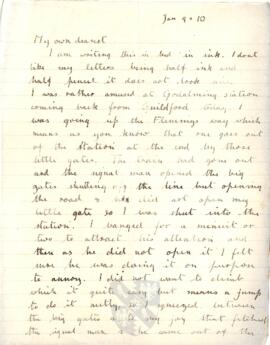 Jan 9 - 10
My own dearest
I am writing this in bed in ink. I dont
like my letters being half ink and
half pencil it does not look nice.
I was rather amused at Godalming station
coming back from Guildford today. I
was going up the Flemmings way which
means as you know that one goes out
of the Station at the end by those
little gates. The train had gone out
and the signal man opened the big
gates shutting the line but opening
the road & did not open my
little gate so I was shut into the
station. I banged for a minute or
two to attract his attention and
then as he did not open it I felt
sure he was doing it on purpose
to annoy. I did not want to climb
which it quite but means a jump
to do it so I squeezed between
the big gates & that fetched
the signal man he came out of the